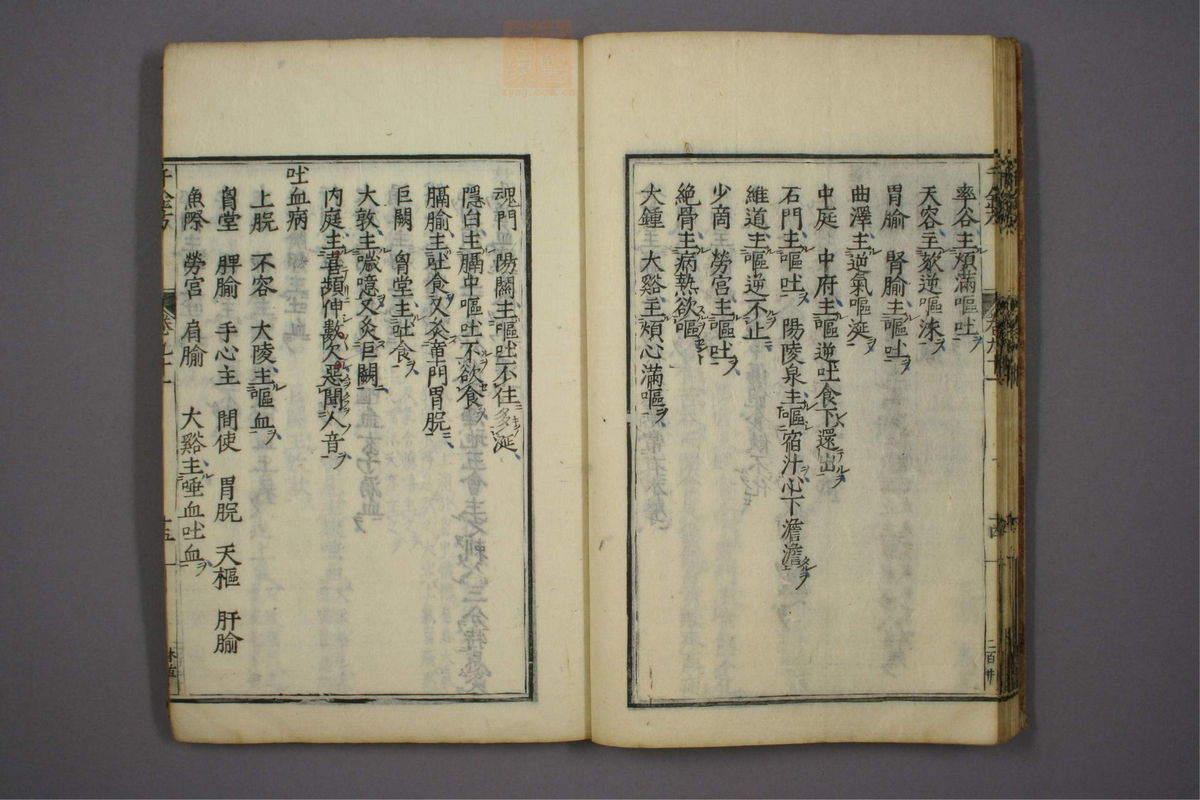 率谷主煩滿嘔吐
天容主欬逆嘔沫
胃腧　腎腧主嘔吐
曲澤主逆氣嘔涎
中庭　中府主嘔逆吐食下還出
石門主嘔吐　陽陵泉主嘔宿汁心下澹澹
維道主嘔逆不止
少商　勞宮主嘔吐
絶骨主病熱欲嘔
大鍾　大谿主煩心滿嘔
魂門　陽關主嘔吐不住多涎
隱白主膈中嘔吐不欲食
膈腧主吐食又灸章門胃脘
巨闕　胷堂主吐食
大敦主噦噫又灸巨闕
内庭主喜頻伸數欠惡聞人音
吐血病
上脘　不容　大陵主嘔血
胷堂　脾腧　手心主　間使　胃脘　天樞　肝腧
魚際　勞宮　肩腧　大谿主唾血吐血
十五